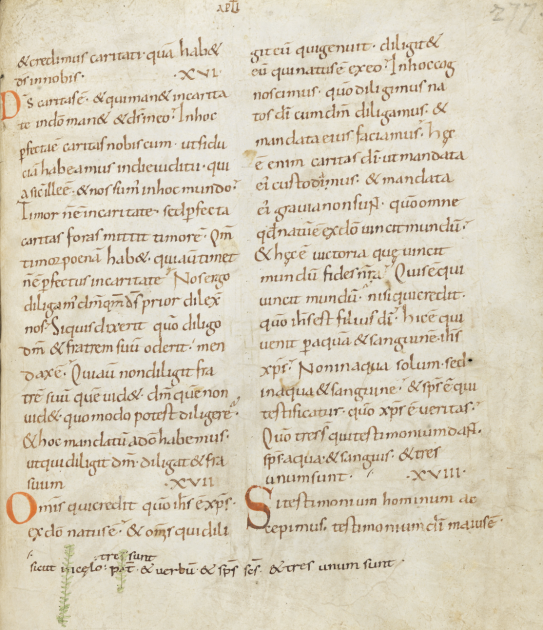 APĪI
277
& credimus caritati quā hab&
ds in nobis · XVI ·
Ds caritas ē · & qui man& in carita
te in dō man& · & ds in eo · In hoc
pfecta ē caritas nobiscum · ut fidu
ciā habeamus in die iudicii · qui
a sic ille ē · & nos sum in hoc mundo ·
Timor nē in caritate · sed pfecta
caritas foras mittit timorē · Qm
timor poenā hab& · qui aū timet
nē pfectus in caritate Nos ergo
diligam dm qm ds prior dilex
nos · Si quis dixerit quō diligo
dm & fratrem suū oderit · men
dax ē · Qui aū non diligit fra
trē suū quē uid& · dm quē non
uid& · quomodo potest diligere ·
& hoc mandatū a dō habemus ·
ut qui diligit dm · diligat & fra
suum · XVII ·
Omīs qui credit quō ihs ē xps ·
ex dō natus ē · & oms qui dili
git eū qui genuit · diligit &
eū qui natus ē ex eo · In hoc cog
noscimus · quō diligimus na
tos dī cum dm diligamus · &
mandata eius faciamus · hęc
ē enim caritas dī ut mandata
ei custodimus · & mandata
ei grauia non sunt · quō omne
qd natū ē ex dō uincit mundū ·
& hęc ē uictoria quę uincit
mundū fides nra · Quis ē qui
uincit mundū · nisi qui credit ·
quō ihs est filius dī · hic ē qui
uenit p aqua & sanguinē · ihs
xps · Non in aqua solum · sed
in aqua & sanguine · & sps ē qui
testificatur · quō xps ē ueritas ·
Quō tres s qui testimonium dant ·
sps · aqua · & sanguis · & tres
unum sunt · XVIII ·
Si testimonium hominum ac
cepimus · testimonium dī maius ē ·
tres sunt
sicut in celo · pat · & uerbū · & sps scs · & tres unum sunt